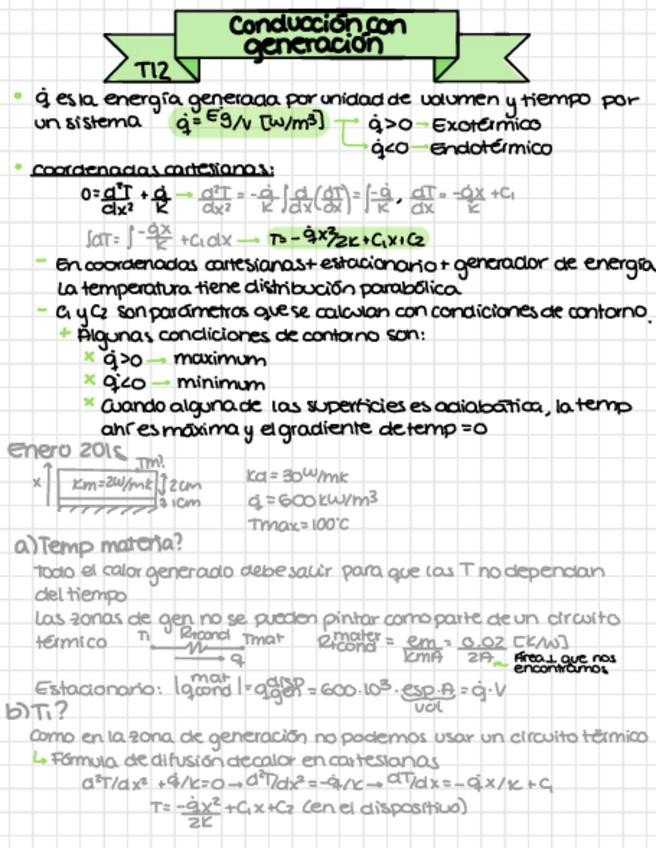 Conducción con
generación
T12
• q̇ es la energía generada por unidad de volumen y tiempo por
un sistema q̇ = Eg/V [W/m³] q̇>0 → Exotérmico
q̇<0 → Endotérmico
• coordenadas cartesianas:
0 = d²T/dx² + q̇/K → d²T/dx² = -q̇/K ∫d/dx(dT/dx) = ∫-q̇/K, dT/dx = -q̇x/K + C₁
∫dT = ∫-q̇x/K + C₁dx → T = -q̇x²/2K + C₁x + C₂
- En coordenadas cartesianas + estacionario + generador de energía
La temperatura tiene distribución parabólica
- C₁ y C₂ son parámetros que se calculan con condiciones de contorno.
+ Algunas condiciones de contorno son:
× q̇>0 → maximum
× q̇<0 → minimum
× Cuando alguna de las superficies es adiabática, la temp
ahí es máxima y el gradiente de temp = 0
Enero 2015
Tm?
x Km=2W/mk 2cm
1cm
Kd = 30W/mk
q̇ = 600 KW/m³
Tmax = 100°C
a) Temp materia?
Todo el calor generado debe salir para que las T no dependan
del tiempo
Las zonas de gen no se pueden pintar como parte de un circuito
térmico T₁ Rcond Tmat q Rcond mater = em/KmA = 0.02/2A [K/W]
Área ⊥ que nos
encontramos
Estacionario: |qcond mat| = qgen disp = 600·10³·esp·A = q̇·V
vol
b) T₁?
como en la zona de generación no podemos usar un circuito térmico
↳ Fórmula de difusión de calor en cartesianas
d²T/dx² + q̇/K = 0 → d²T/dx² = -q̇/K → dT/dx = -q̇x/K + C₁
T = -q̇x²/2K + C₁x + C₂ (en el dispositivo)